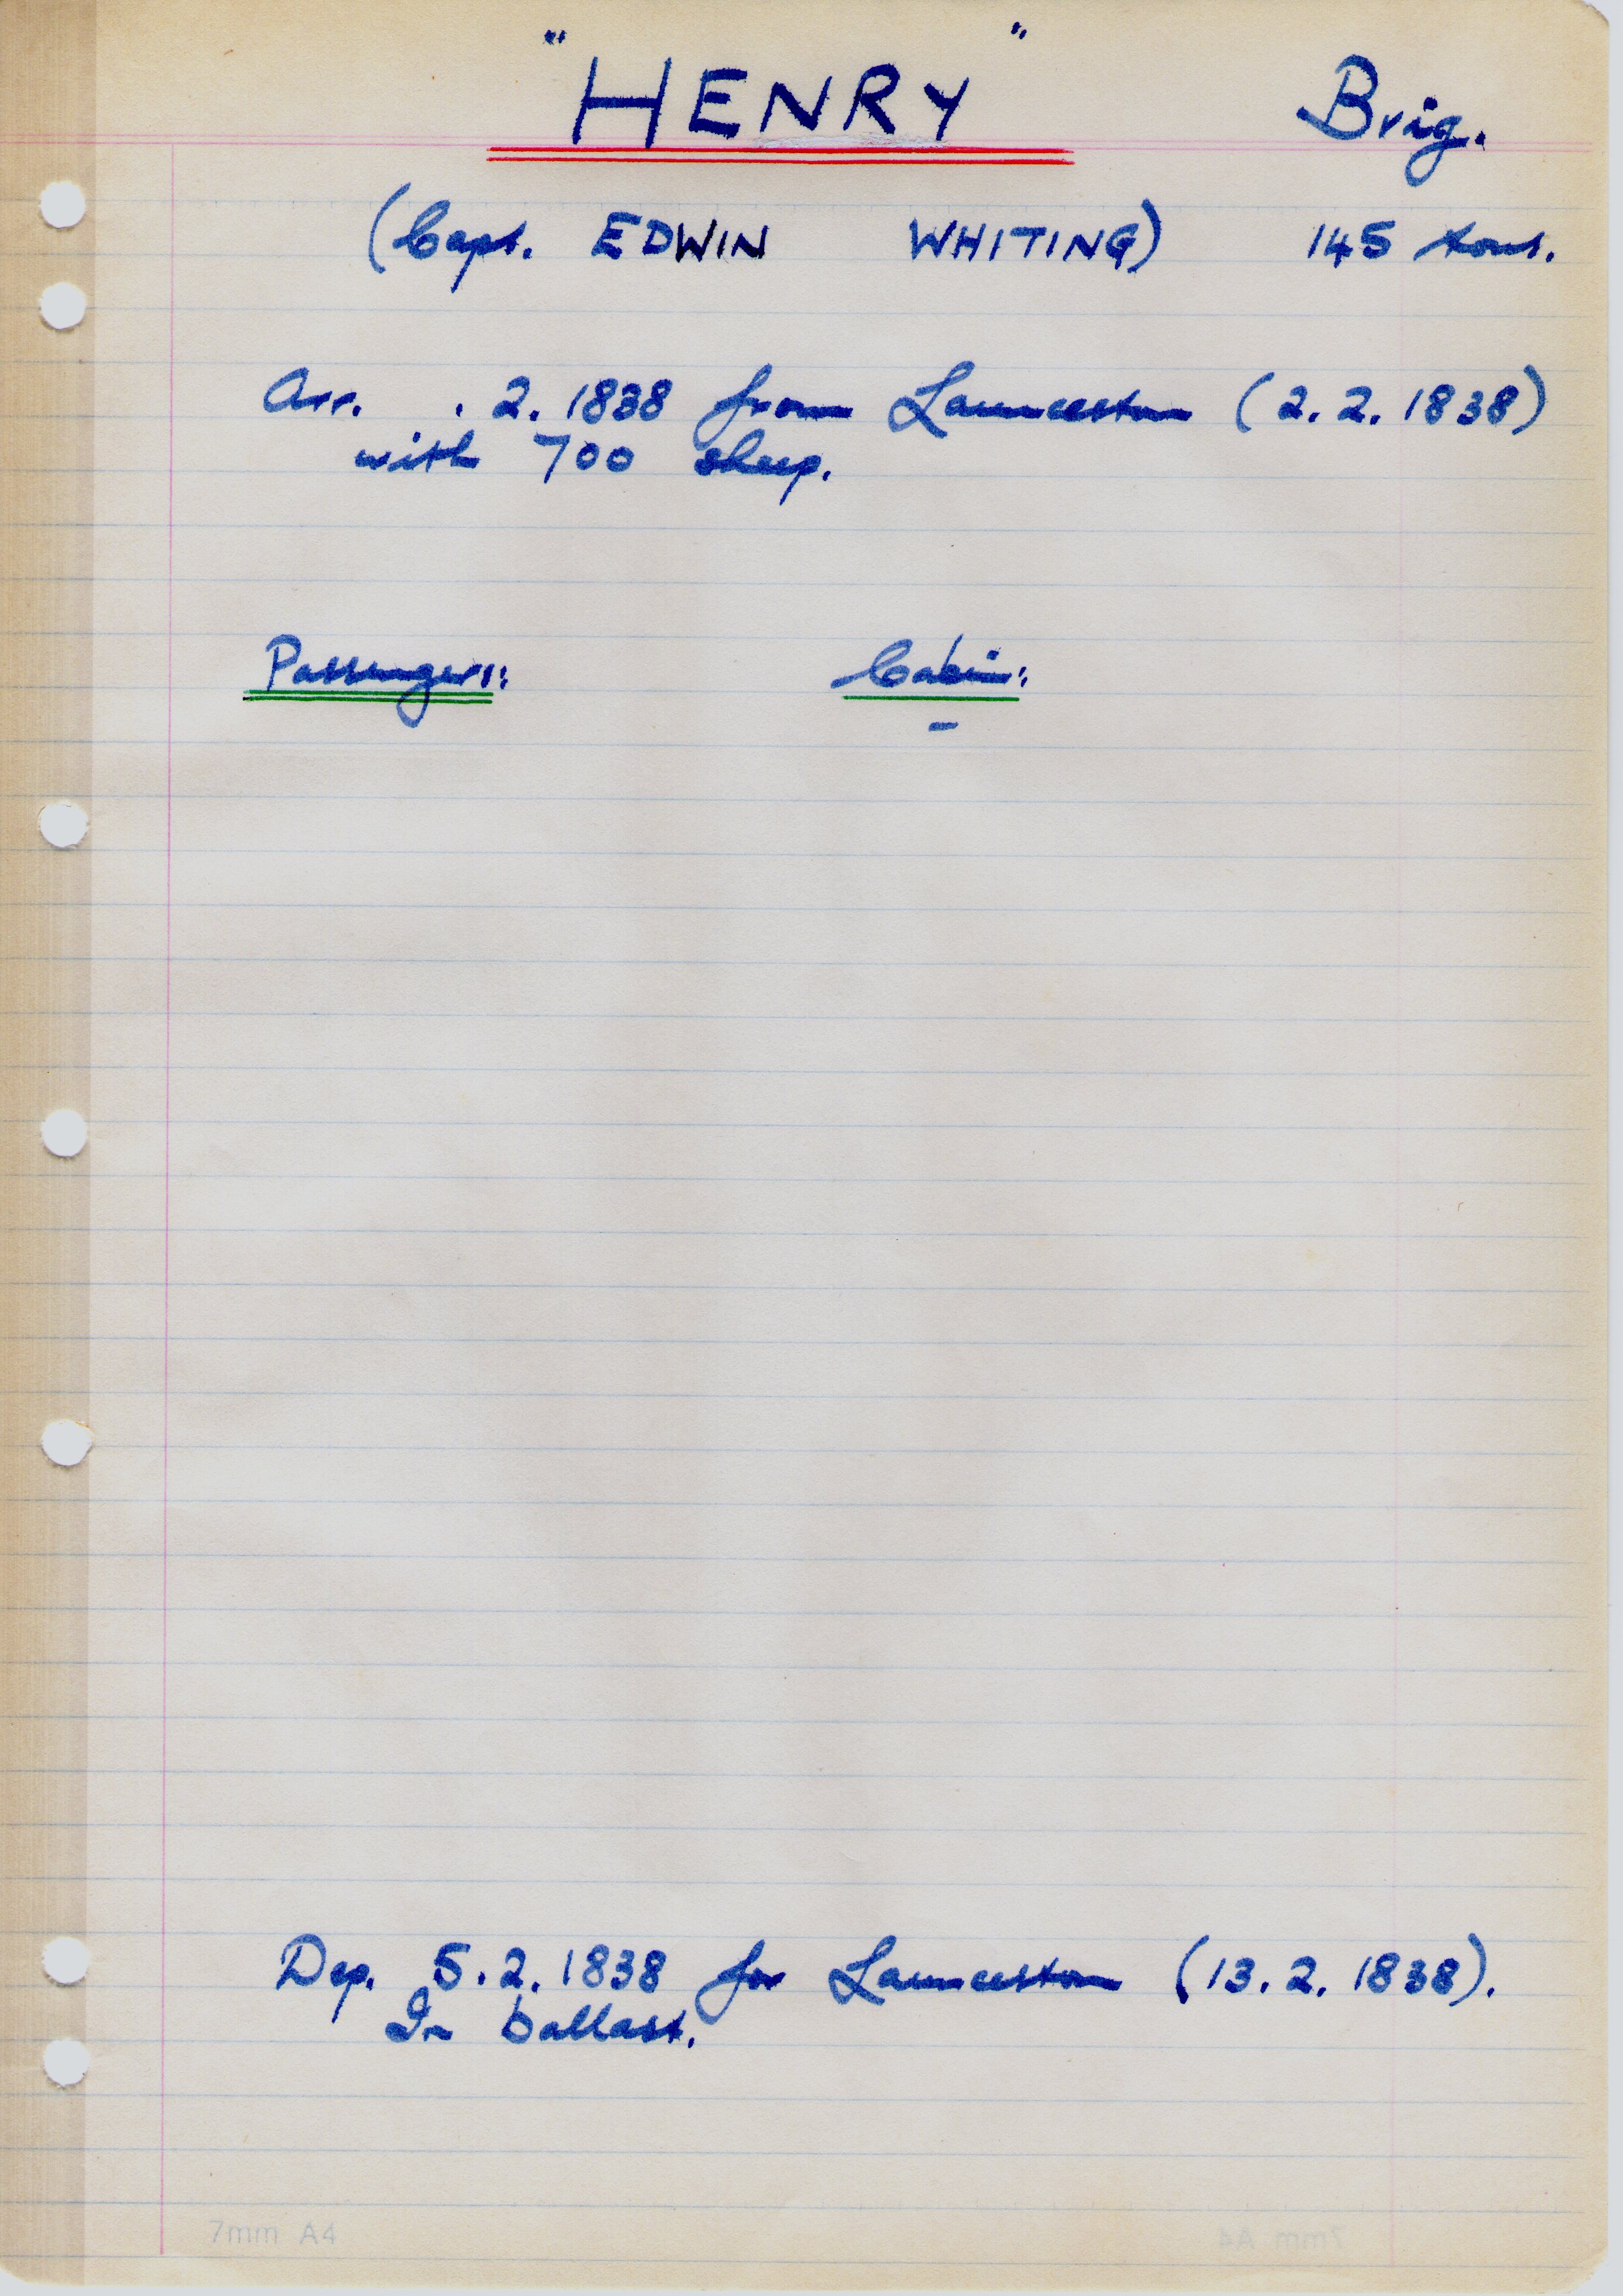 "HENRY" Brig.
(Capt. EDWIN WHITING) 145 tons.
Arr. . 2. 1838 from Launceston (2. 2. 1838)
with 700 sheep.
Passengers: Cabin:
-
Dep. 5. 2. 1838 for Launceston (13. 2. 1838).
In ballast.
7mm A4